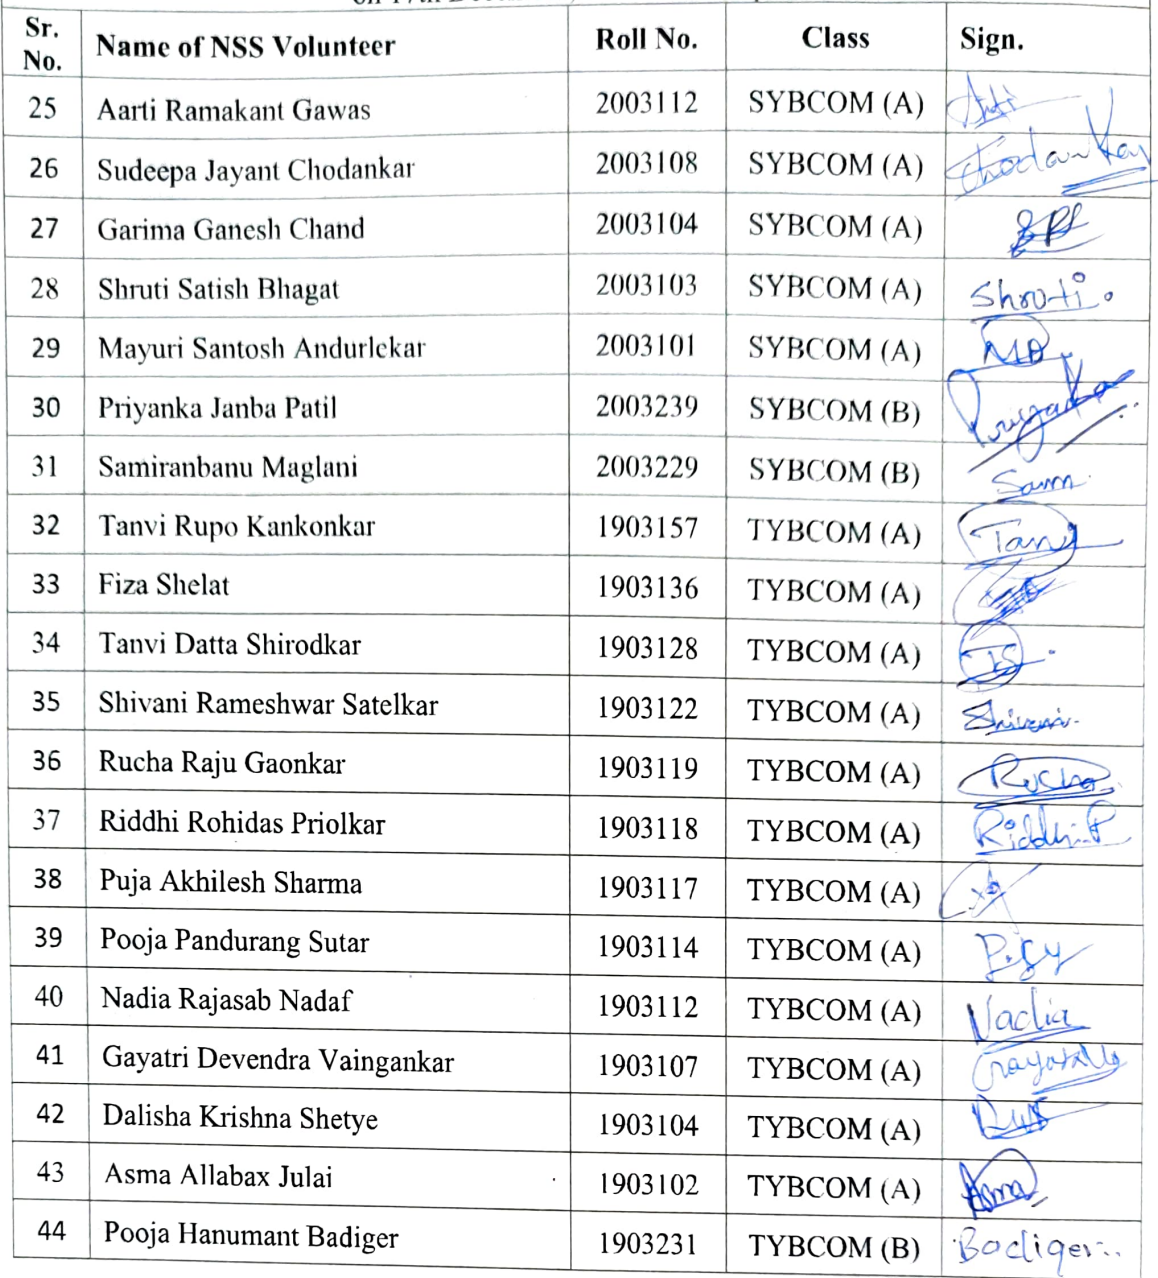 Sr. No. Name of NSS Volunteer Roll No. Class Sign.
25 Aarti Ramakant Gawas 2003112 SYBCOM (A) Arti
26 Sudeepa Jayant Chodankar 2003108 SYBCOM (A) Chodankar
27 Garima Ganesh Chand 2003104 SYBCOM (A)
28 Shruti Satish Bhagat 2003103 SYBCOM (A) Shruti.
29 Mayuri Santosh Andurlekar 2003101 SYBCOM (A)
30 Priyanka Janba Patil 2003239 SYBCOM (B) Priyanka
31 Samiranbanu Maglani 2003229 SYBCOM (B) Sam
32 Tanvi Rupo Kankonkar 1903157 TYBCOM (A) Tanvi
33 Fiza Shelat 1903136 TYBCOM (A)
34 Tanvi Datta Shirodkar 1903128 TYBCOM (A) TS
35 Shivani Rameshwar Satelkar 1903122 TYBCOM (A) Shivani
36 Rucha Raju Gaonkar 1903119 TYBCOM (A) Rucha
37 Riddhi Rohidas Priolkar 1903118 TYBCOM (A) Riddhi.P
38 Puja Akhilesh Sharma 1903117 TYBCOM (A)
39 Pooja Pandurang Sutar 1903114 TYBCOM (A)
40 Nadia Rajasab Nadaf 1903112 TYBCOM (A) Nadia
41 Gayatri Devendra Vaingankar 1903107 TYBCOM (A)
42 Dalisha Krishna Shetye 1903104 TYBCOM (A)
43 Asma Allabax Julai 1903102 TYBCOM (A) Asma
44 Pooja Hanumant Badiger 1903231 TYBCOM (B) Badiger